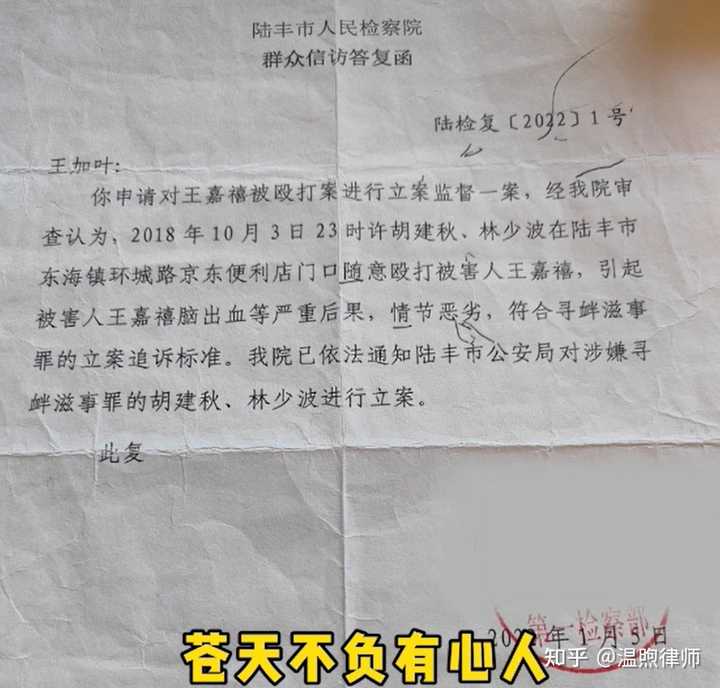 陆丰市人民检察院
群众信访答复函
陆检复〔2022〕1号
王加叶：
你申请对王嘉禧被殴打案进行立案监督一案，经我院审
查认为，2018年10月3日23时许胡建秋、林少波在陆丰市
东海镇环城路京东便利店门口随意殴打被害人王嘉禧，引起
被害人王嘉禧脑出血等严重后果，情节恶劣，符合寻衅滋事
罪的立案追诉标准。我院已依法通知陆丰市公安局对涉嫌寻
衅滋事罪的胡建秋、林少波进行立案。
此复
第一检察部
2022年1月5日
苍天不负有心人
知乎 @温煦律师